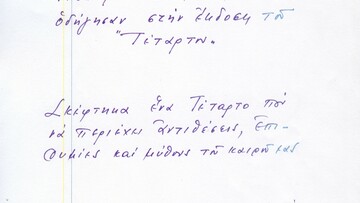 ὁδήγησαν στὴν ἔκδοση τοῦ
"Τέταρτου.
Σκέφτηκα ἕνα Τέταρτο ποὺ
νὰ περιέχει ἀντιθέσεις, ἐπι-
θυμίες καὶ μύθους τοῦ καιροῦ μας